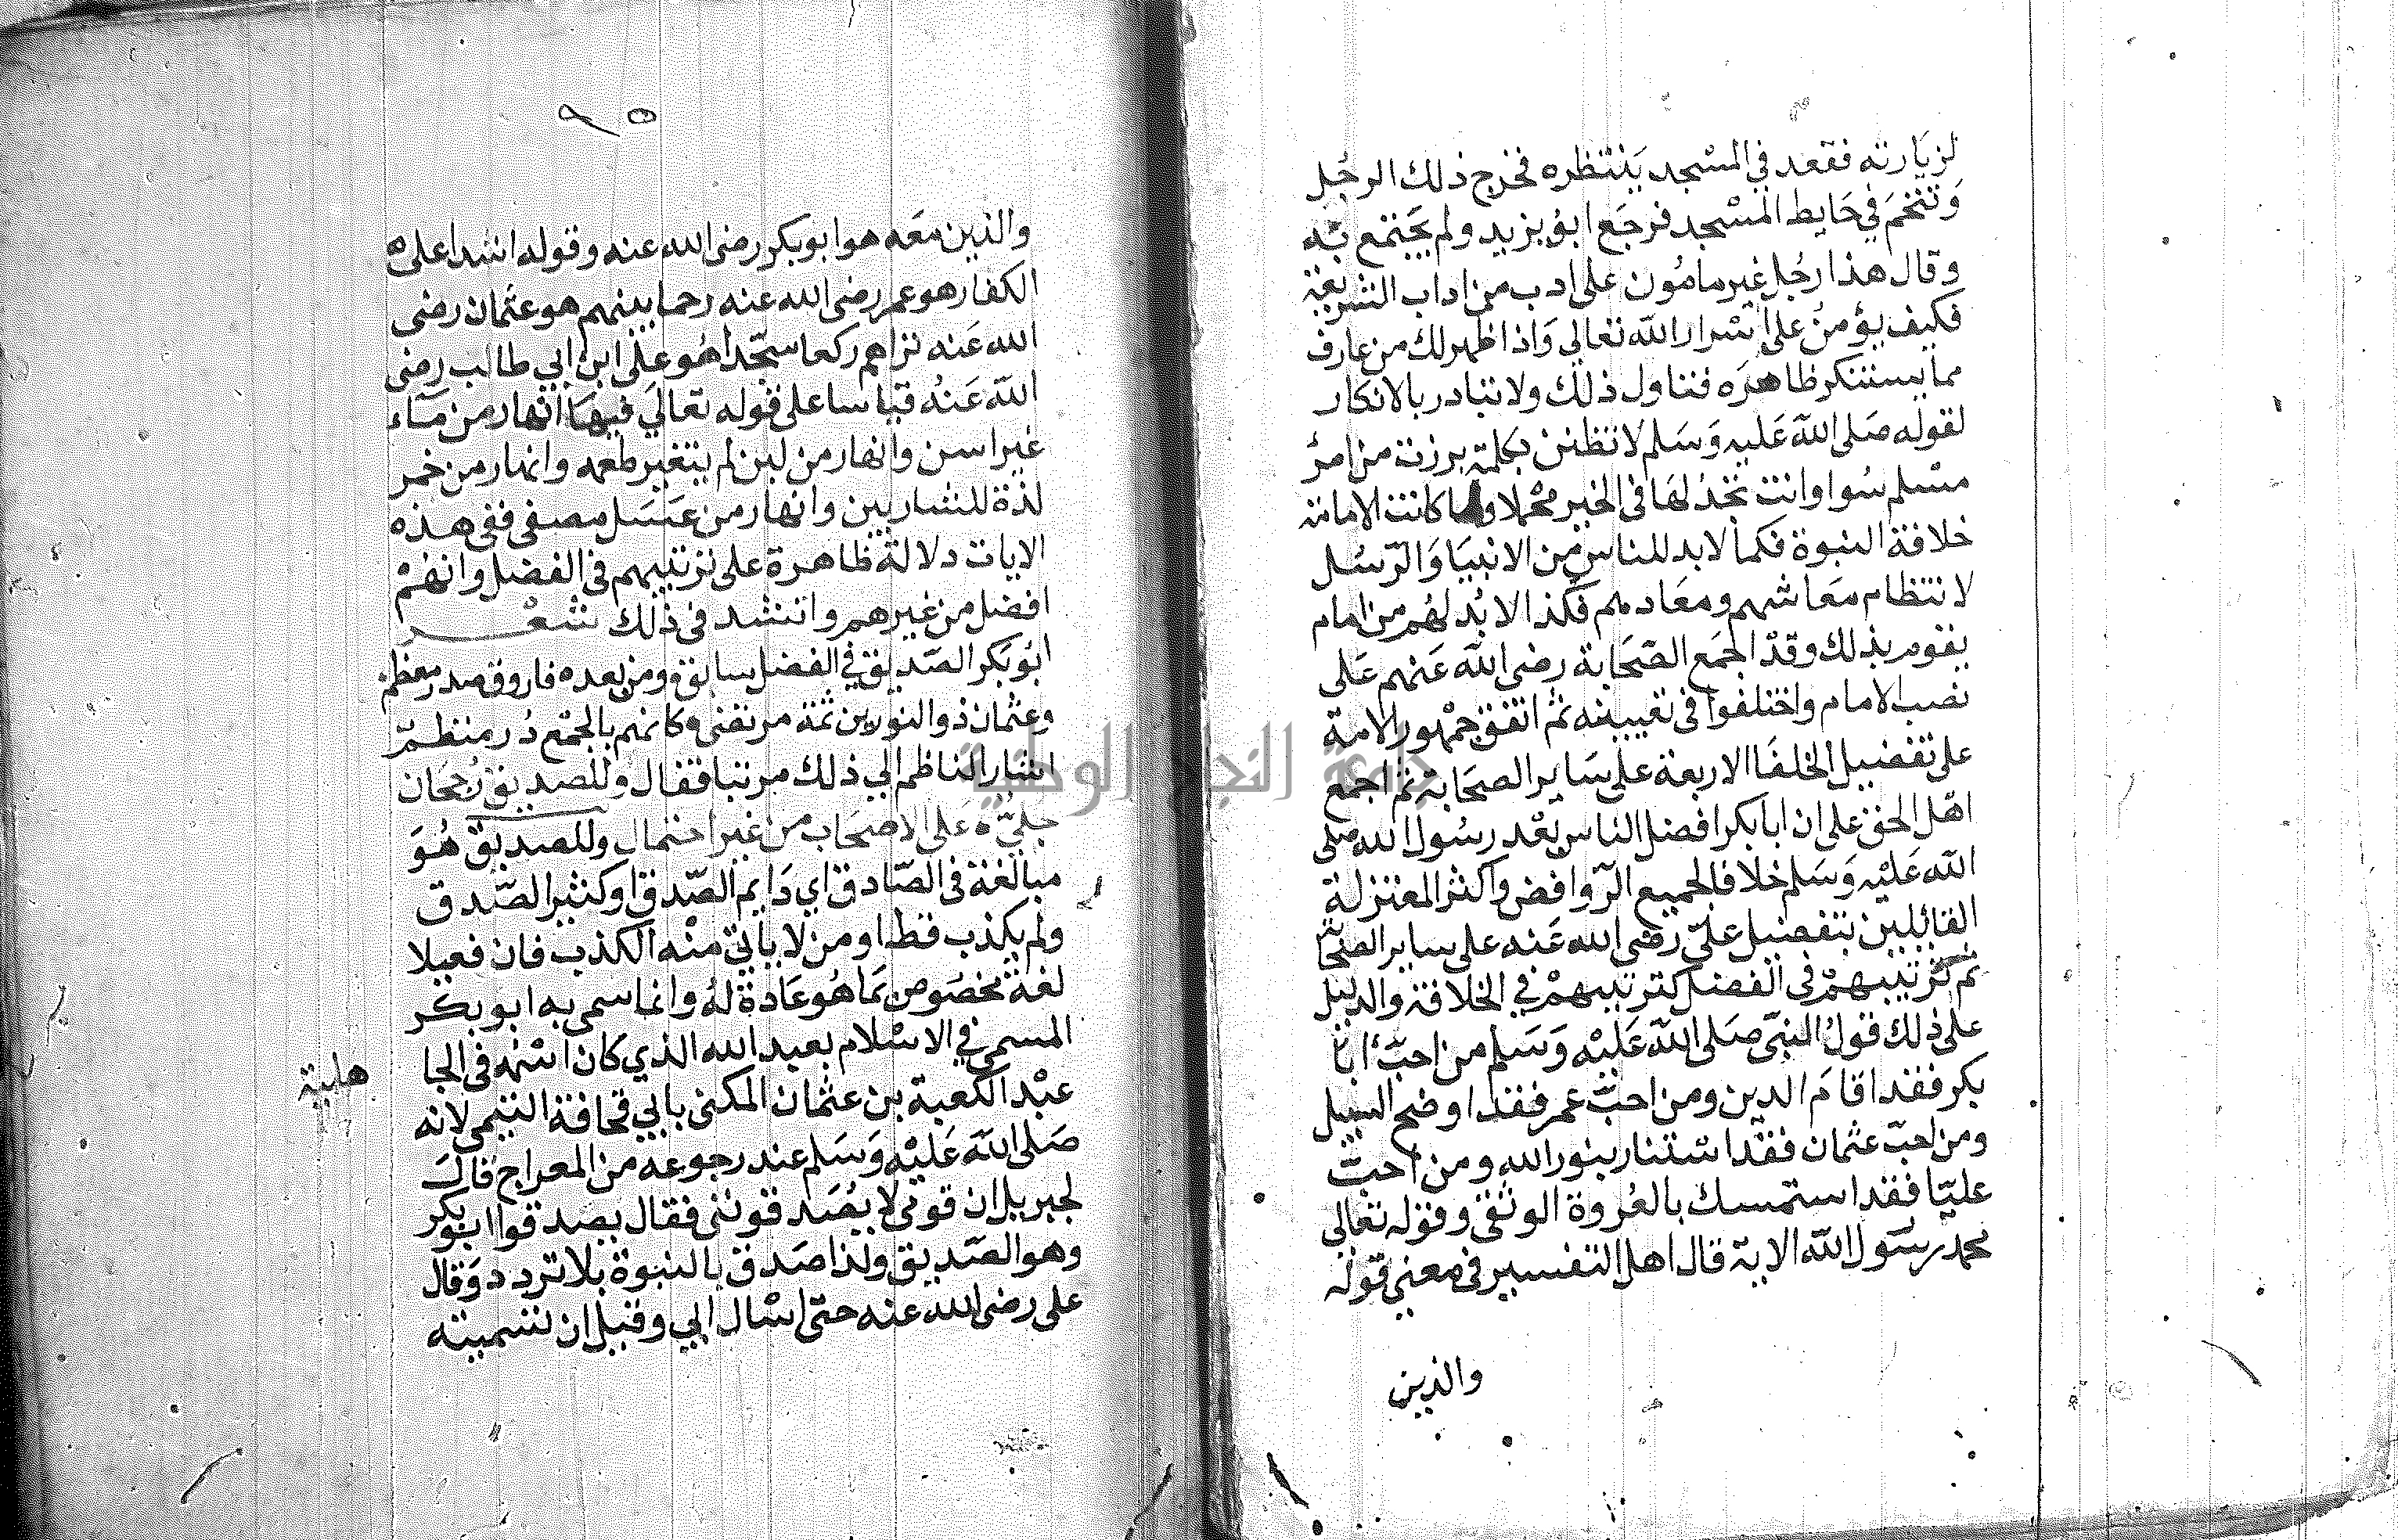 لزيارته فقعد في المسجد ينتظره فخرج ذلك الرجل
وتنخم في حايط المسجد فرجع ابو يزيد ولم يجتمع به
وقال هذا رجل غير مامون على ادب من اداب الشريعة
فكيف يؤمن على اسرار الله تعالى واذا ظهر لك من عارف
مما يستنكر ظاهره فتاول ذلك ولا تبادر بالانكار
لقوله صلى الله عليه وسلم لا تظنن بكلمة برزت من امرئ
مسلم سوا وانت تجد لها في الخير محملا ولما كانت الامامة
خلافة النبوة فكما لا بد للناس من الانبيا والرسل
لانتظام معاشهم ومعادهم فكذا لا بد لهم من امام
يقوم بذلك وقد اجمع الصحابة رضي الله عنهم على
نصب الامام واختلفوا في تعيينه ثم اتفق جمهور الامة
على تفضيل الخلفا الاربعة على ساير الصحابة ثم اجمع
اهل الحق على ان ابا بكر افضل الناس بعد رسول الله صلى
الله عليه وسلم خلافا لجميع الروافض واكثر المعتزلة
القايلين بتفضيل علي رضي الله عنه على ساير الصحابة
ثم ترتيبهم في الفضل كترتيبهم في الخلافة والدليل
على ذلك قول النبي صلى الله عليه وسلم من احب ابا
بكر فقد اقام الدين ومن احب عمر فقد اوضح السبيل
ومن احب عثمان فقد استنار بنور الله ومن احب
عليا فقد استمسك بالعروة الوثقى وقوله تعالى
محمد رسول الله الاية قال اهل التفسير في معنى قوله
والذين
٩٥
والذين معه هو ابو بكر رضي الله عنه وقوله اشدا على
الكفار هو عمر رضي الله عنه رحما بينهم هو عثمان رضي
الله عنه تراهم ركعا سجدا هو علي ابن ابي طالب رضي
الله عنه قياسا على قوله تعالى فيها انهار من ماء
غير اسن وانهار من لبن لم يتغير طعمه وانهار من خمر
لذة للشاربين وانهار من عسل مصفى ففي هذه
الايات دلالة ظاهرة على ترتيبهم في الفضل وانهم
افضل من غيرهم وانشد في ذلك شعر
ابو بكر الصديق في الفضل سابق ومن بعده فاروق صدر معظم
وعثمان ذو النورين ثمة مرتضى وكانهم بالجمع در منظم
اشار الناظم الي ذلك مرتبا فقال وللصديق رجحان
جلي على الاصحاب من غير احتمال وللصديق هو
مبالغة في الصادق اي دايم الصدق او كثير الصدق
ولم يكذب قط او من لا ياتي منه الكذب فان فعيلا
لغة مخصوص بما هو عادة له وانما سمى به ابو بكر
المسمى في الاسلام بعبد الله الذي كان اسمه في الجا
هلية
عبد الكعبة بن عثمان المكنى بابي قحافة التيمي لانه
صلى الله عليه وسلم عند رجوعه من المعراج قال
لجبريل ان قومي لا يصدقونني فقال يصدقوا ابو بكر
وهو الصديق ولذا صدق بالنبوة بلا تردد وقال
علي رضي الله عنه حتى اسال ابي وقبل ان تسميته
جامعة النجاح الوطنية